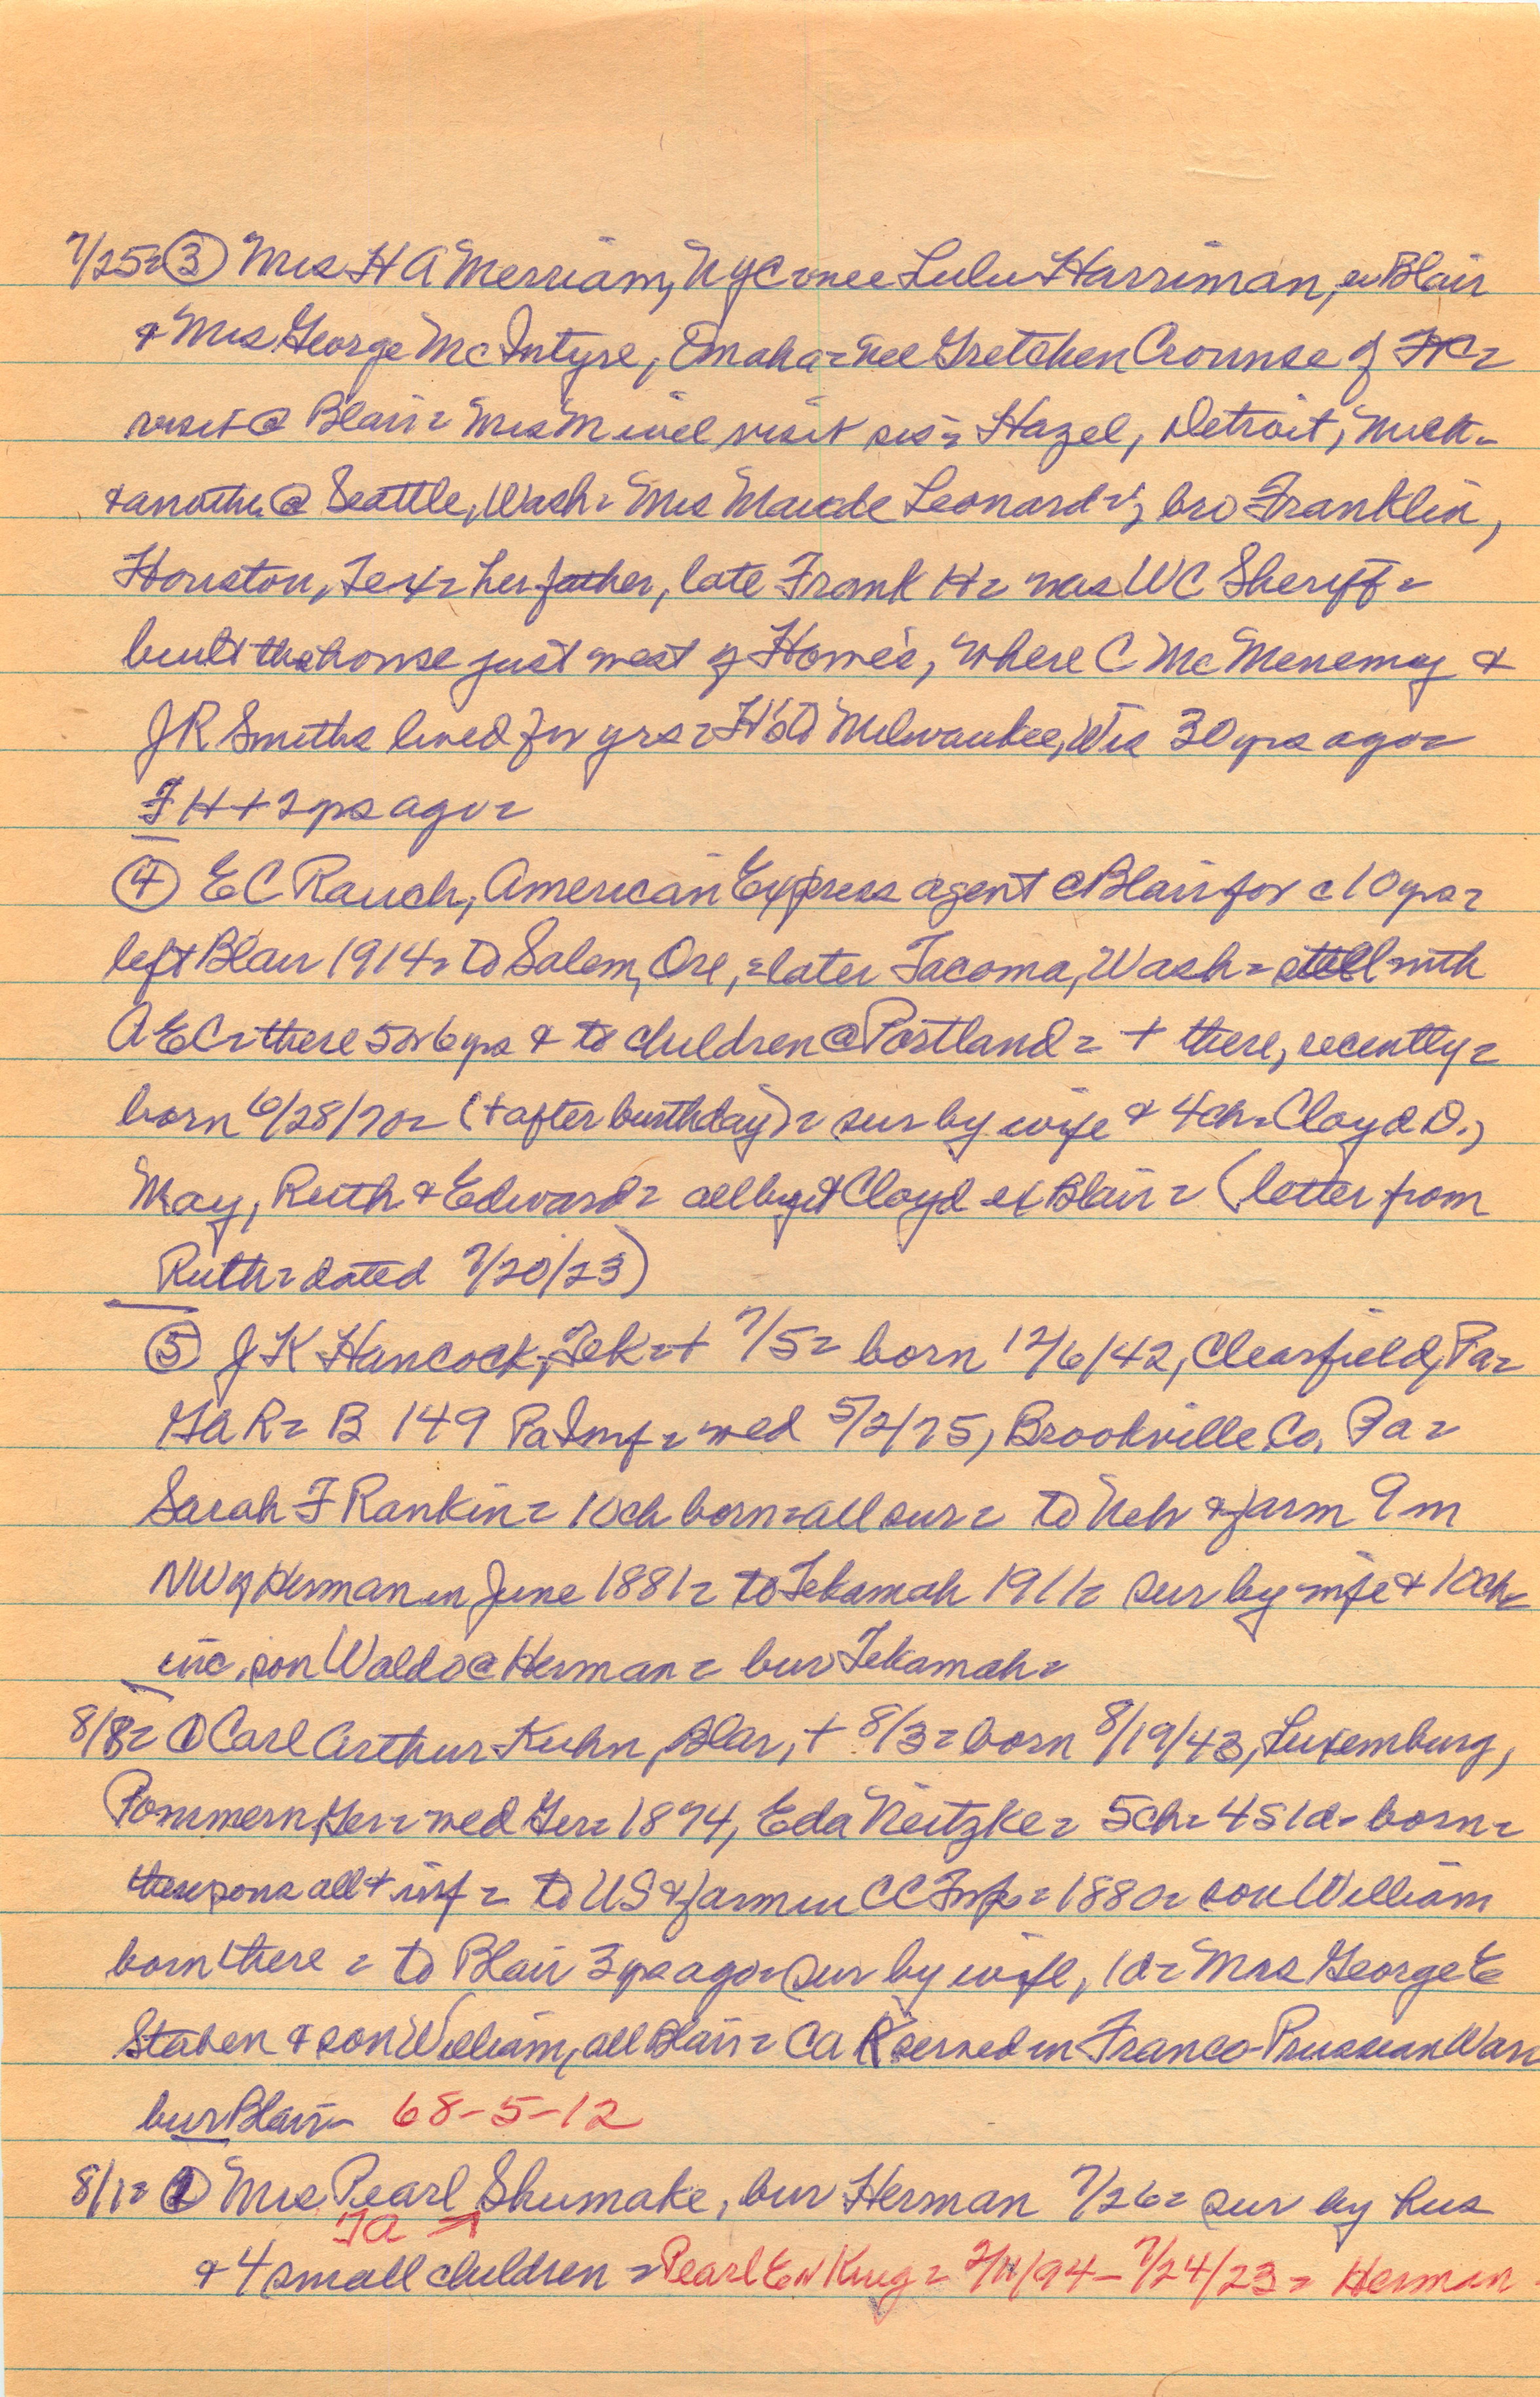 7/25= ③ Mrs H A Merriam, NYC = nee Lulu Harriman, ex Blair
& Mrs George McIntyre, Omaha = nee Gretchen Crounse of FtC =
visit @ Blair = Mrs M will visit sis = Hazel, Detroit, Mich =
& another @ Seattle, Wash = Mrs Maude Leonard =; bro Franklin,
Houston, Tex = her father, late Frank H = was WC Sheriff =
built the house just west of Howe's, where C McMenemy &
J R Smiths lived for yrs = H's to Milwaukee, Wis 30 yrs ago =
F H + 2 yrs ago =
④ E C Rauch, American Express agent @ Blair for c 10 yrs =
left Blair 1914 = to Salem, Ore, = later Tacoma, Wash = still with
A E C = there 5 or 6 yrs & to children @ Portland = + there, recently =
born 6/28/70 = (+ after birthday) = sur by wife & 4 ch = Cloyd D.,
May, Ruth & Edward = all but Cloyd ex Blair = (letter from
Ruth = dated 7/20/23)
⑤ J K Hancock, Tek = + 7/5 = born 12/6/42, Clearfield, Pa =
GAR = B 149 Pa Inf = wed 5/2/75, Brookville Co, Pa =
Sarah F Rankin = 10 ch born = all sur = to Neb & farm 9 m
NW of Herman in June 1881 = to Tekamah 1911 = sur by wife & 10 ch =
inc. son Waldo @ Herman = bur Tekamah =
8/8= ① Carl Arthur Kuhn, Blair, + 8/3 = born 8/19/43, Luxemburg,
Pommern, Ger = wed Ger = 1874, Eda Neitzke = 5 ch = 4 s 1 d = born =
these sons all + inf = to US & farm in CC = 1880 = son William
born there = to Blair 3 yrs ago = sur by wife, 1 d = Mrs George E
Staben & son William, all Blair = C A K served in Franco-Prussian War =
bur Blair = 68-5-12
8/1= ① Mrs Pearl Shumake, bur Herman 7/26 = sur by hus
Ia
& 4 small children = Pearl E N Krug = 2/11/94 - 7/24/23 = Herman